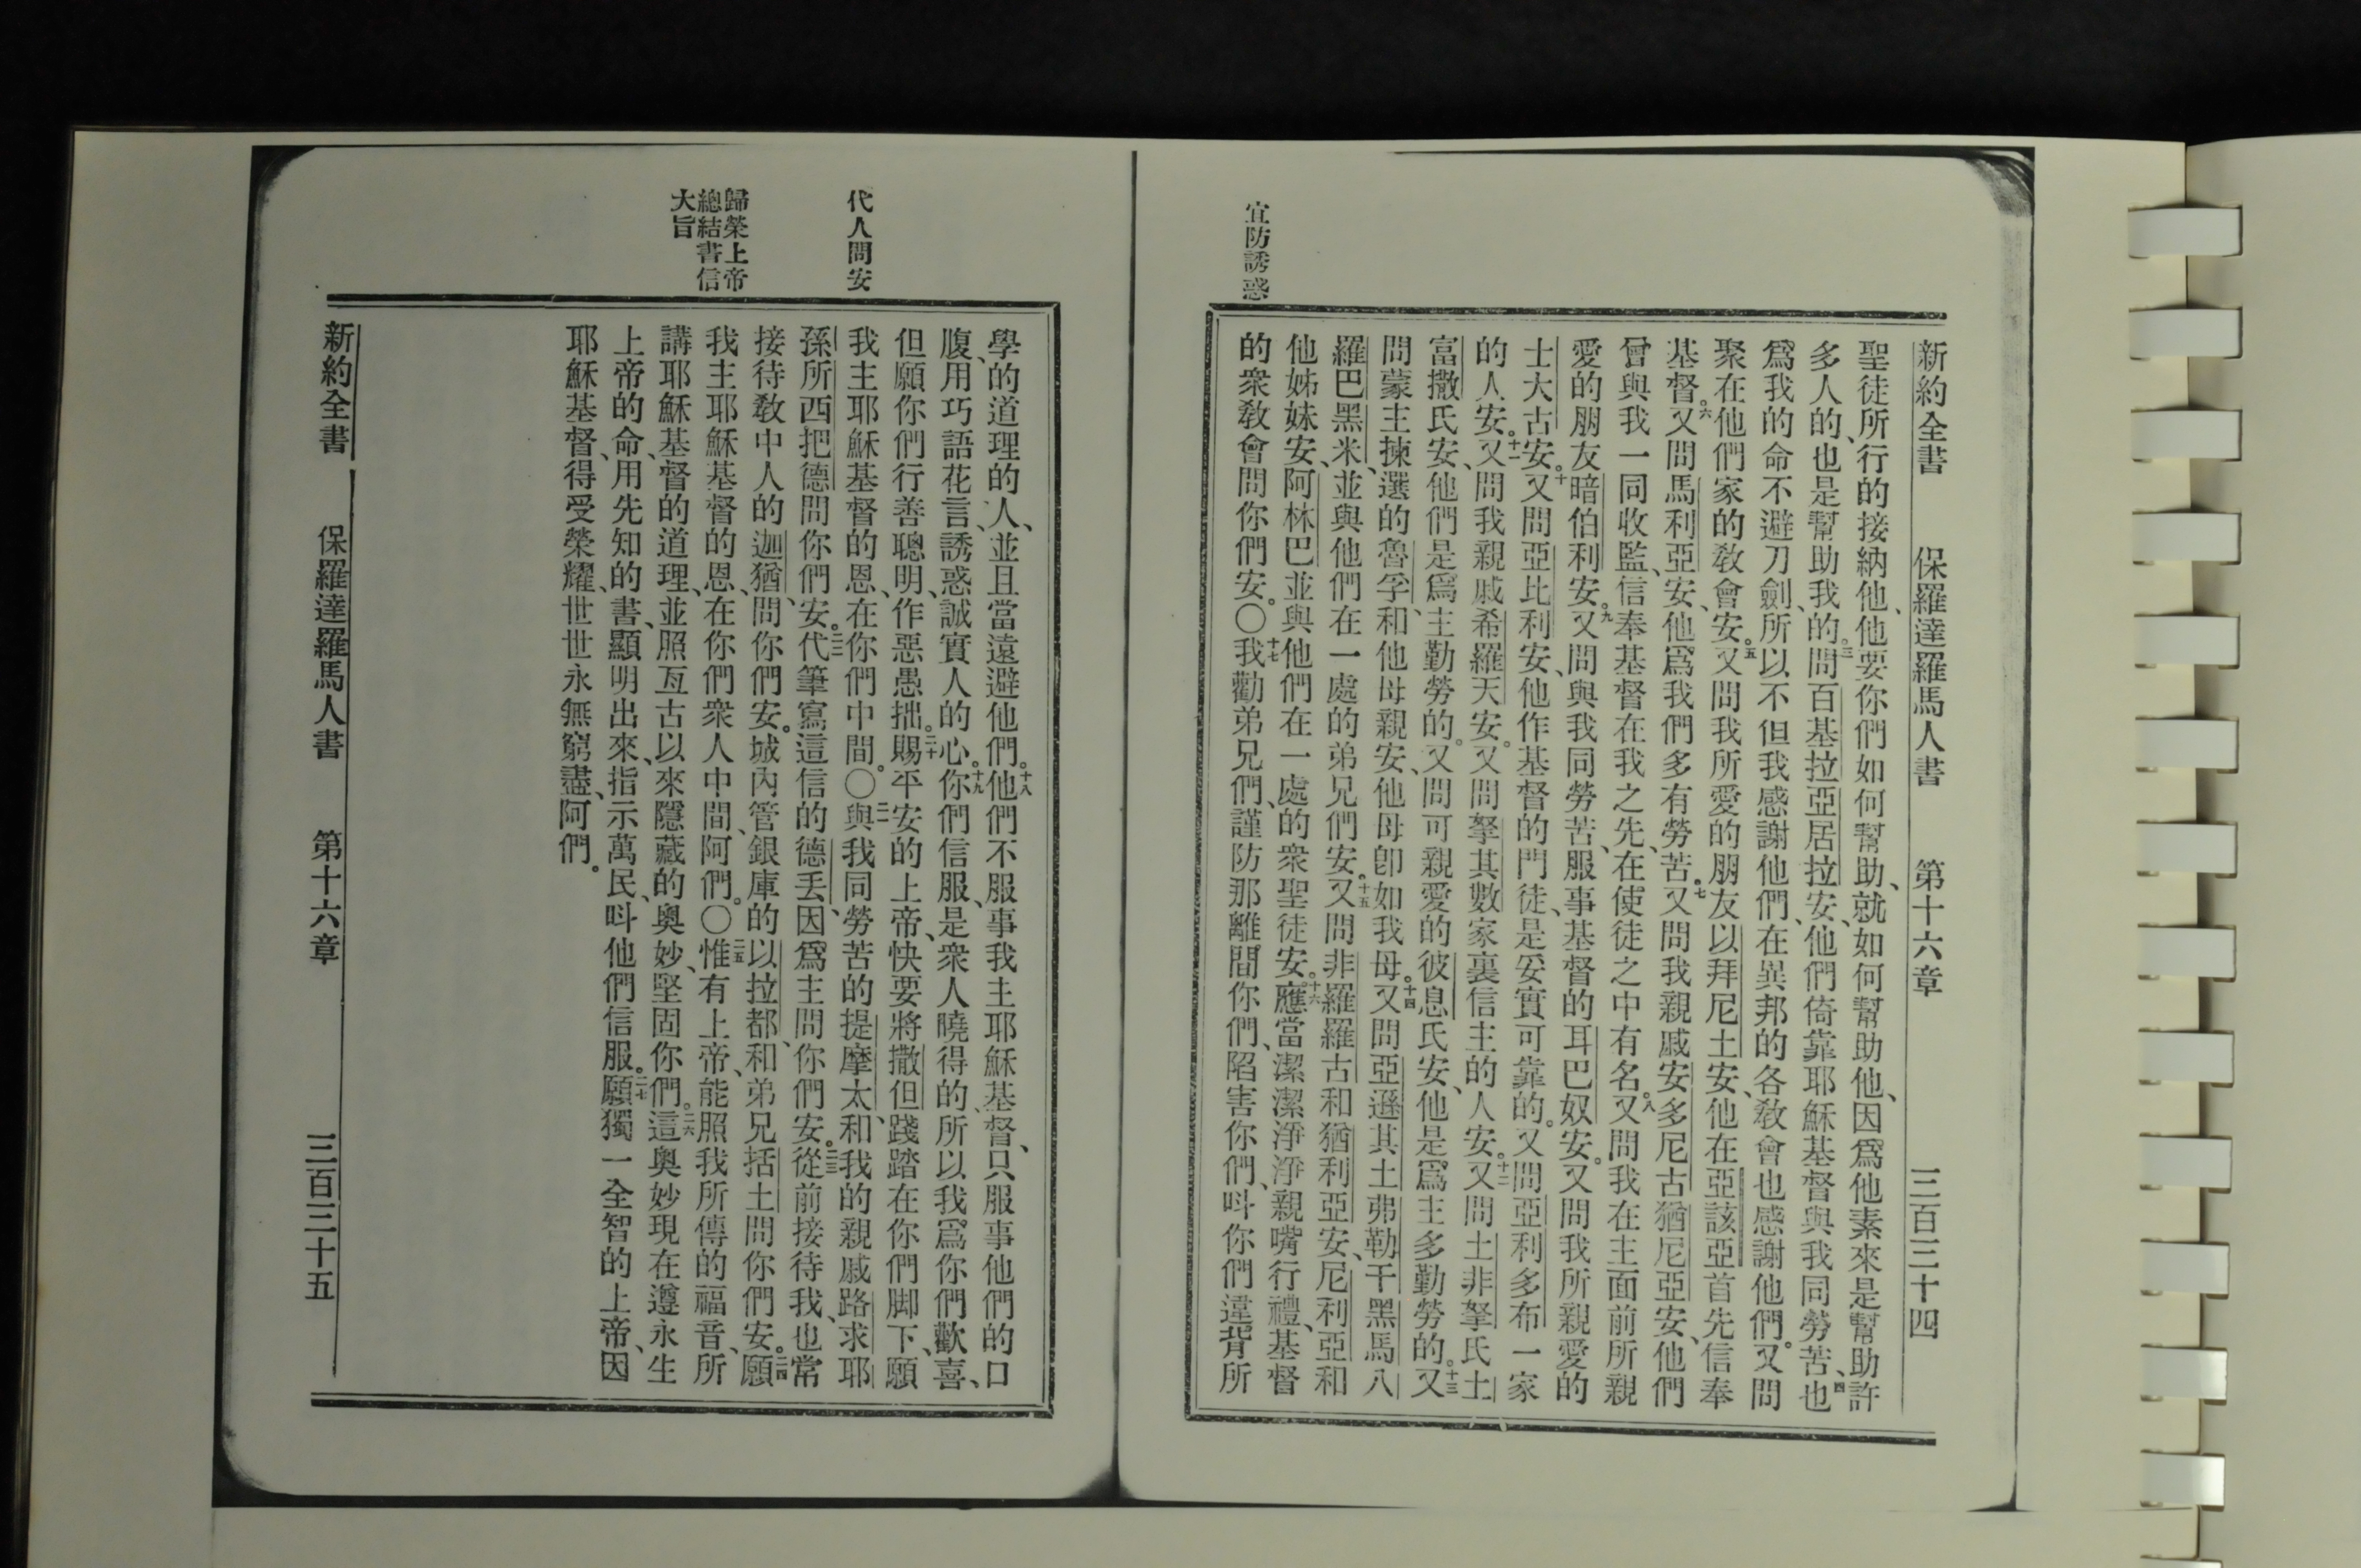 新約全書 保羅達羅馬人書 第十六章 三百三十四
聖徒所行的接納他、他要你們如何幫助、就如何幫助他、因爲他素來是幫助許
多人的、也是幫助我的。三問百基拉亞居拉安、他們倚靠耶穌基督與我同勞苦、四也
爲我的命不避刀劍、所以不但我感謝他們、在異邦的各敎會也感謝他們。又問
聚在他們家的敎會安。五又問我所愛的朋友以拜尼土安、他在亞該亞首先信奉
基督。六又問馬利亞安、他爲我們多有勞苦。七又問我親戚安多尼古猶尼亞安、他們
曾與我一同收監、信奉基督在我之先、在使徒之中有名。八又問我在主面前所親
愛的朋友暗伯利安。九又問與我同勞苦、服事基督的耳巴奴安。又問我所親愛的
士大古安。十又問亞比利安、他作基督的門徒、是妥實可靠的。又問亞利多布一家
的人安。十一又問我親戚希羅天安。又問拏其數家裏信主的人安。十二又問土非拏氏土
富撒氏安、他們是爲主勤勞的。又問可親愛的彼息氏安、他是爲主多勤勞的。十三又
問蒙主揀選的魯孚、和他母親安、他母卽如我母。十四又問亞遜其土弗勒干黑馬八
羅巴黑米、並與他們在一處的弟兄們安。十五又問非羅羅古和猶利亞安、尼利亞和
他姊妹安、阿林巴並與他們在一處的衆聖徒安。十六應當潔潔淨淨親嘴行禮、基督
的衆敎會問你們安。〇十七我勸弟兄們、謹防那離間你們、陷害你們、呌你們違背所
宜防誘惑
學的道理的人、並且當遠避他們。十八他們不服事我主耶穌基督、只服事他們的口
腹、用巧語花言、誘惑誠實人的心。十九你們信服、是衆人曉得的、所以我爲你們歡喜、
但願你們行善聰明、作惡愚拙。二十賜平安的上帝、快要將撒但踐踏在你們脚下、願
我主耶穌基督的恩、在你們中間。〇二一與我同勞苦的提摩太、和我的親戚路求耶
孫所西把德問你們安。二二代筆寫這信的德丢、因爲主問你們安。二三從前接待我、也常
接待敎中人的迦猶、問你們安。城內管銀庫的以拉都、和弟兄括土問你們安。二四願
我主耶穌基督的恩、在你們衆人中間、阿們。〇二五惟有上帝、能照我所傳的福音、所
講耶穌基督的道理、並照亙古以來隱藏的奧妙、堅固你們。二六這奧妙現在遵永生
上帝的命、用先知的書、顯明出來、指示萬民、呌他們信服。二七願獨一全智的上帝、因
耶穌基督、得受榮耀、世世永無窮盡、阿們。
新約全書 保羅達羅馬人書 第十六章 三百三十五
代人問安
歸榮上帝
總結書信
大旨